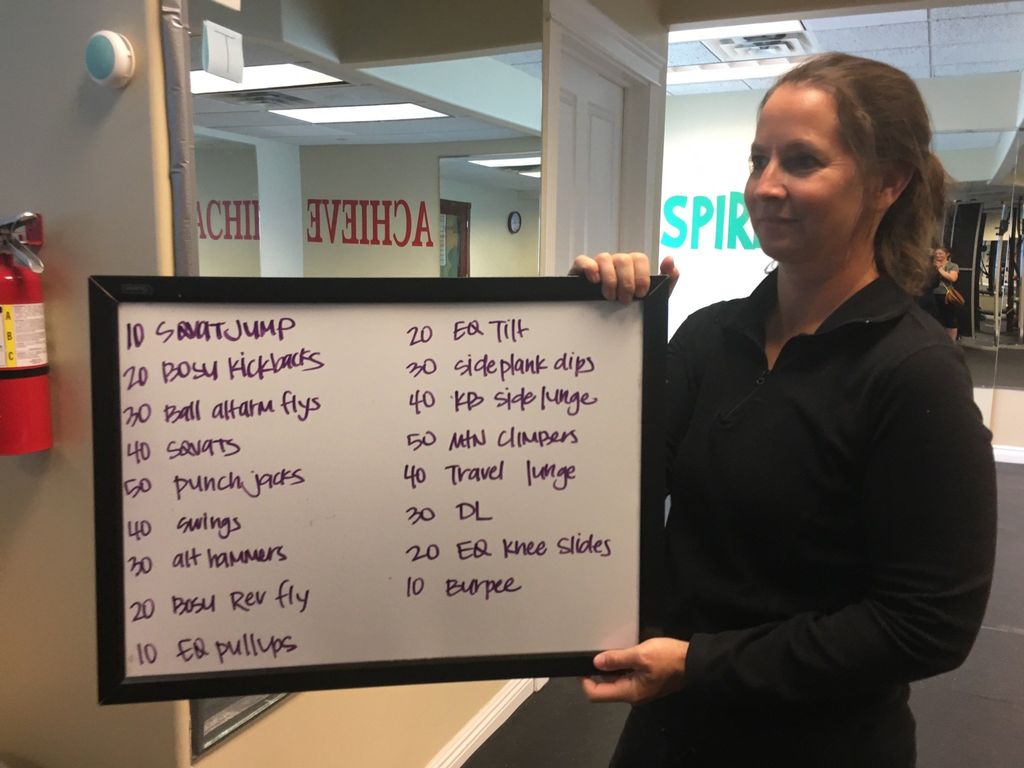 10 SQUAT JUMP
20 BOSU Kickbacks
30 Ball alt arm flys
40 SQUATS
50 punch jacks
40 swings
30 alt hammers
20 BOSU Rev fly
10 EQ pullups
20 EQ Tilt
30 side plank dips
40 KB side lunge
50 MTN Climbers
40 Travel lunge
30 DL
20 EQ Knee Slides
10 Burpee
ACHIEVE
ACHI
SPIR
A
B
C